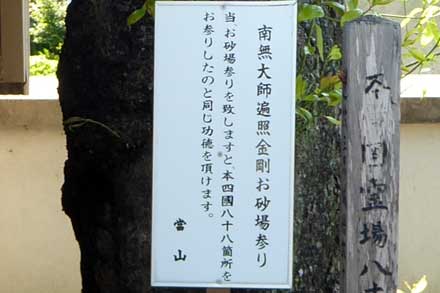 南無大師遍照金剛お砂場参り
当お砂場参りを致しますと、本四國八十八箇所を
お参りしたのと同じ功徳を頂けます。
當山
本四国霊場八十